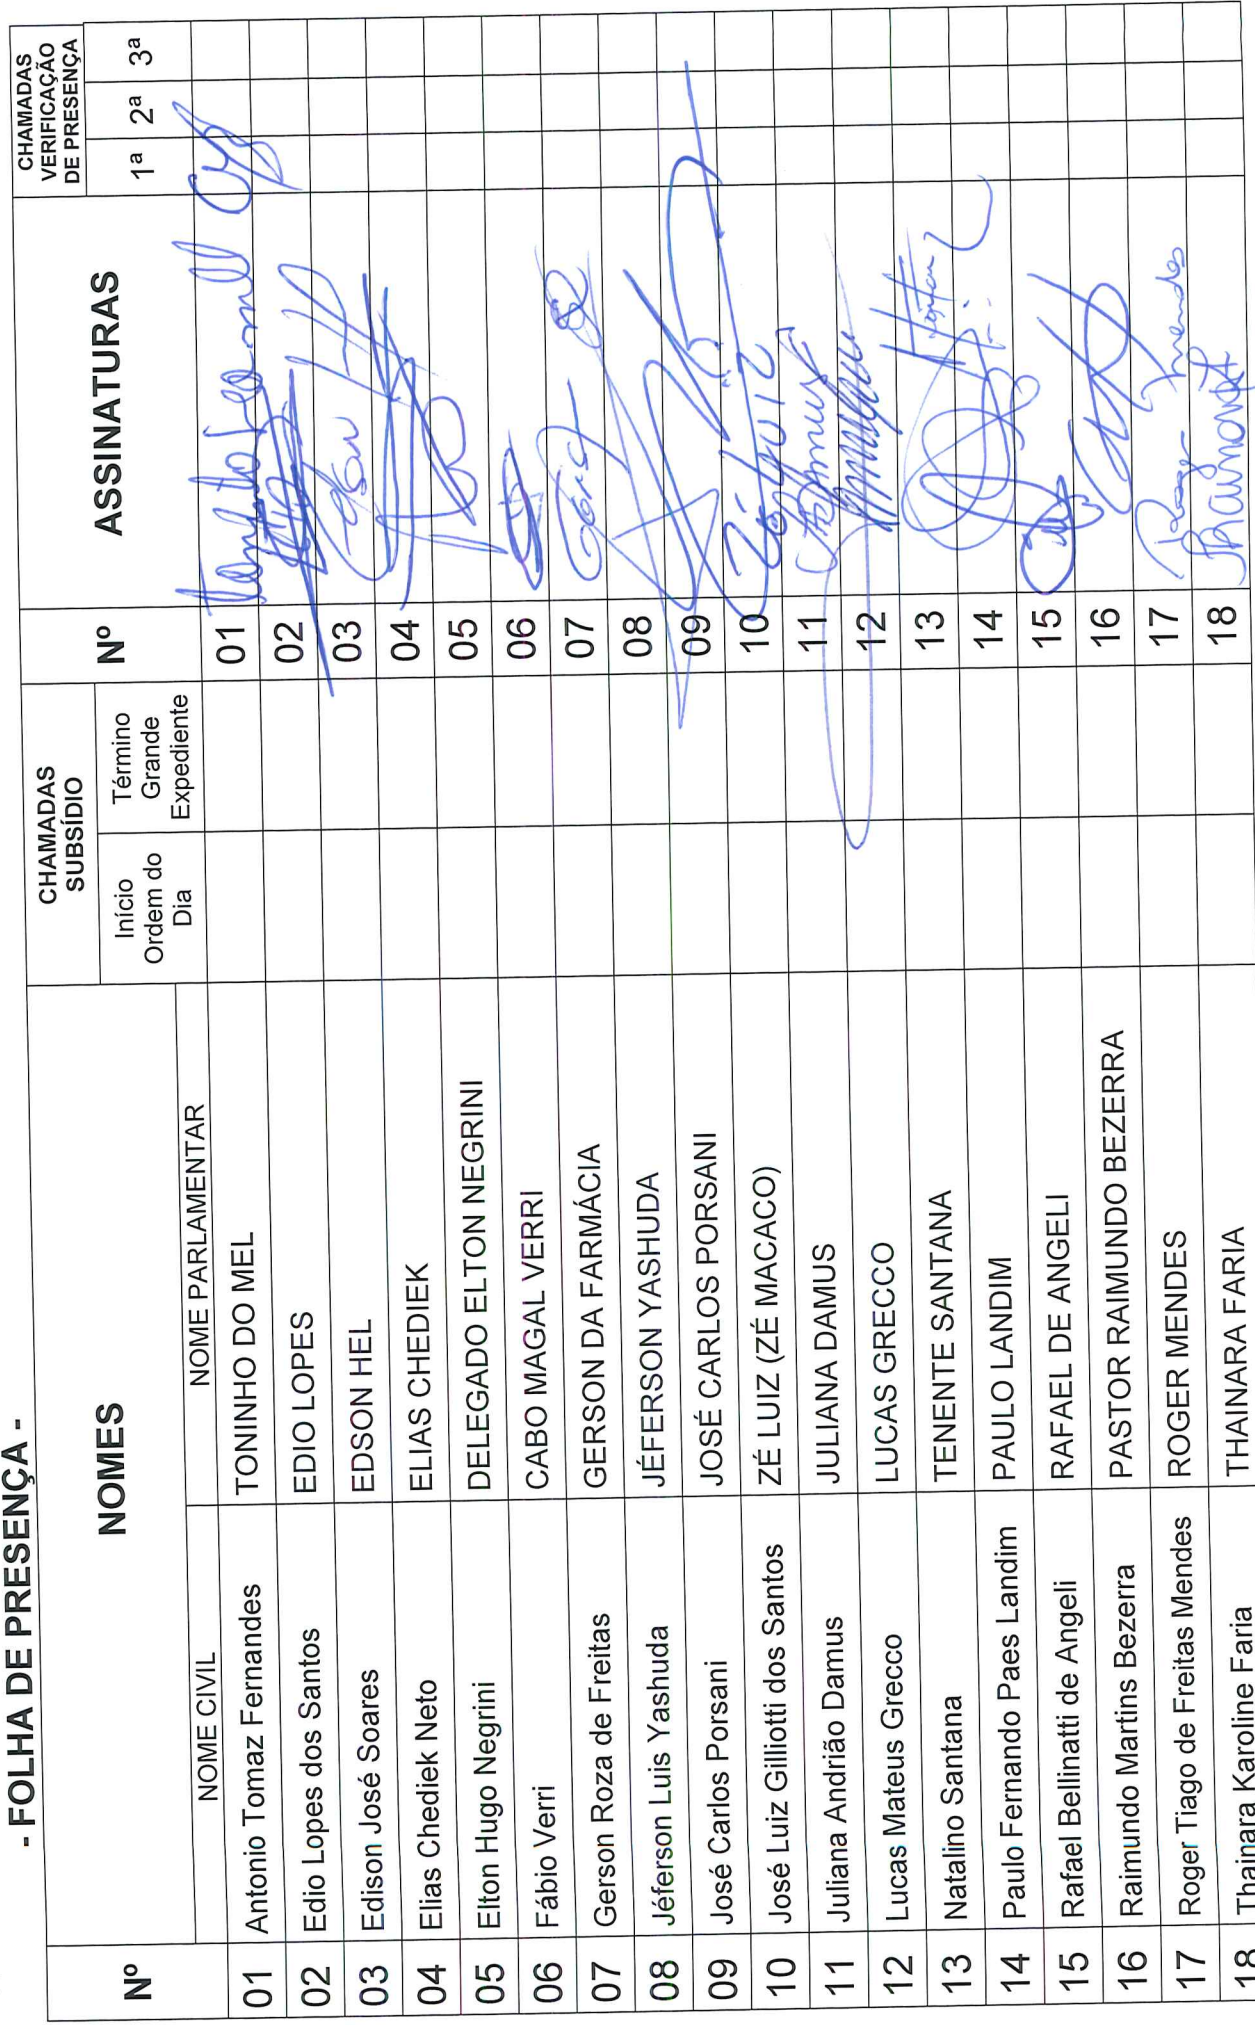 - FOLHA DE PRESENÇA -
Nº NOMES CHAMADAS SUBSÍDIO Nº ASSINATURAS CHAMADAS VERIFICAÇÃO DE PRESENÇA
NOME CIVIL NOME PARLAMENTAR Início Ordem do Dia Término Grande Expediente 1ª 2ª 3ª
01 Antonio Tomaz Fernandes TONINHO DO MEL 01
02 Edio Lopes dos Santos EDIO LOPES 02
03 Edison José Soares EDSON HEL 03
04 Elias Chediek Neto ELIAS CHEDIEK 04
05 Elton Hugo Negrini DELEGADO ELTON NEGRINI 05
06 Fábio Verri CABO MAGAL VERRI 06
07 Gerson Roza de Freitas GERSON DA FARMÁCIA 07
08 Jéferson Luis Yashuda JÉFERSON YASHUDA 08
09 José Carlos Porsani JOSÉ CARLOS PORSANI 09
10 José Luiz Gilliotti dos Santos ZÉ LUIZ (ZÉ MACACO) 10
11 Juliana Andrião Damus JULIANA DAMUS 11
12 Lucas Mateus Grecco LUCAS GRECCO 12
13 Natalino Santana TENENTE SANTANA 13
14 Paulo Fernando Paes Landim PAULO LANDIM 14
15 Rafael Bellinatti de Angeli RAFAEL DE ANGELI 15
16 Raimundo Martins Bezerra PASTOR RAIMUNDO BEZERRA 16
17 Roger Tiago de Freitas Mendes ROGER MENDES 17 Roger Mendes
18 Thainara Karoline Faria THAINARA FARIA 18 Thainara